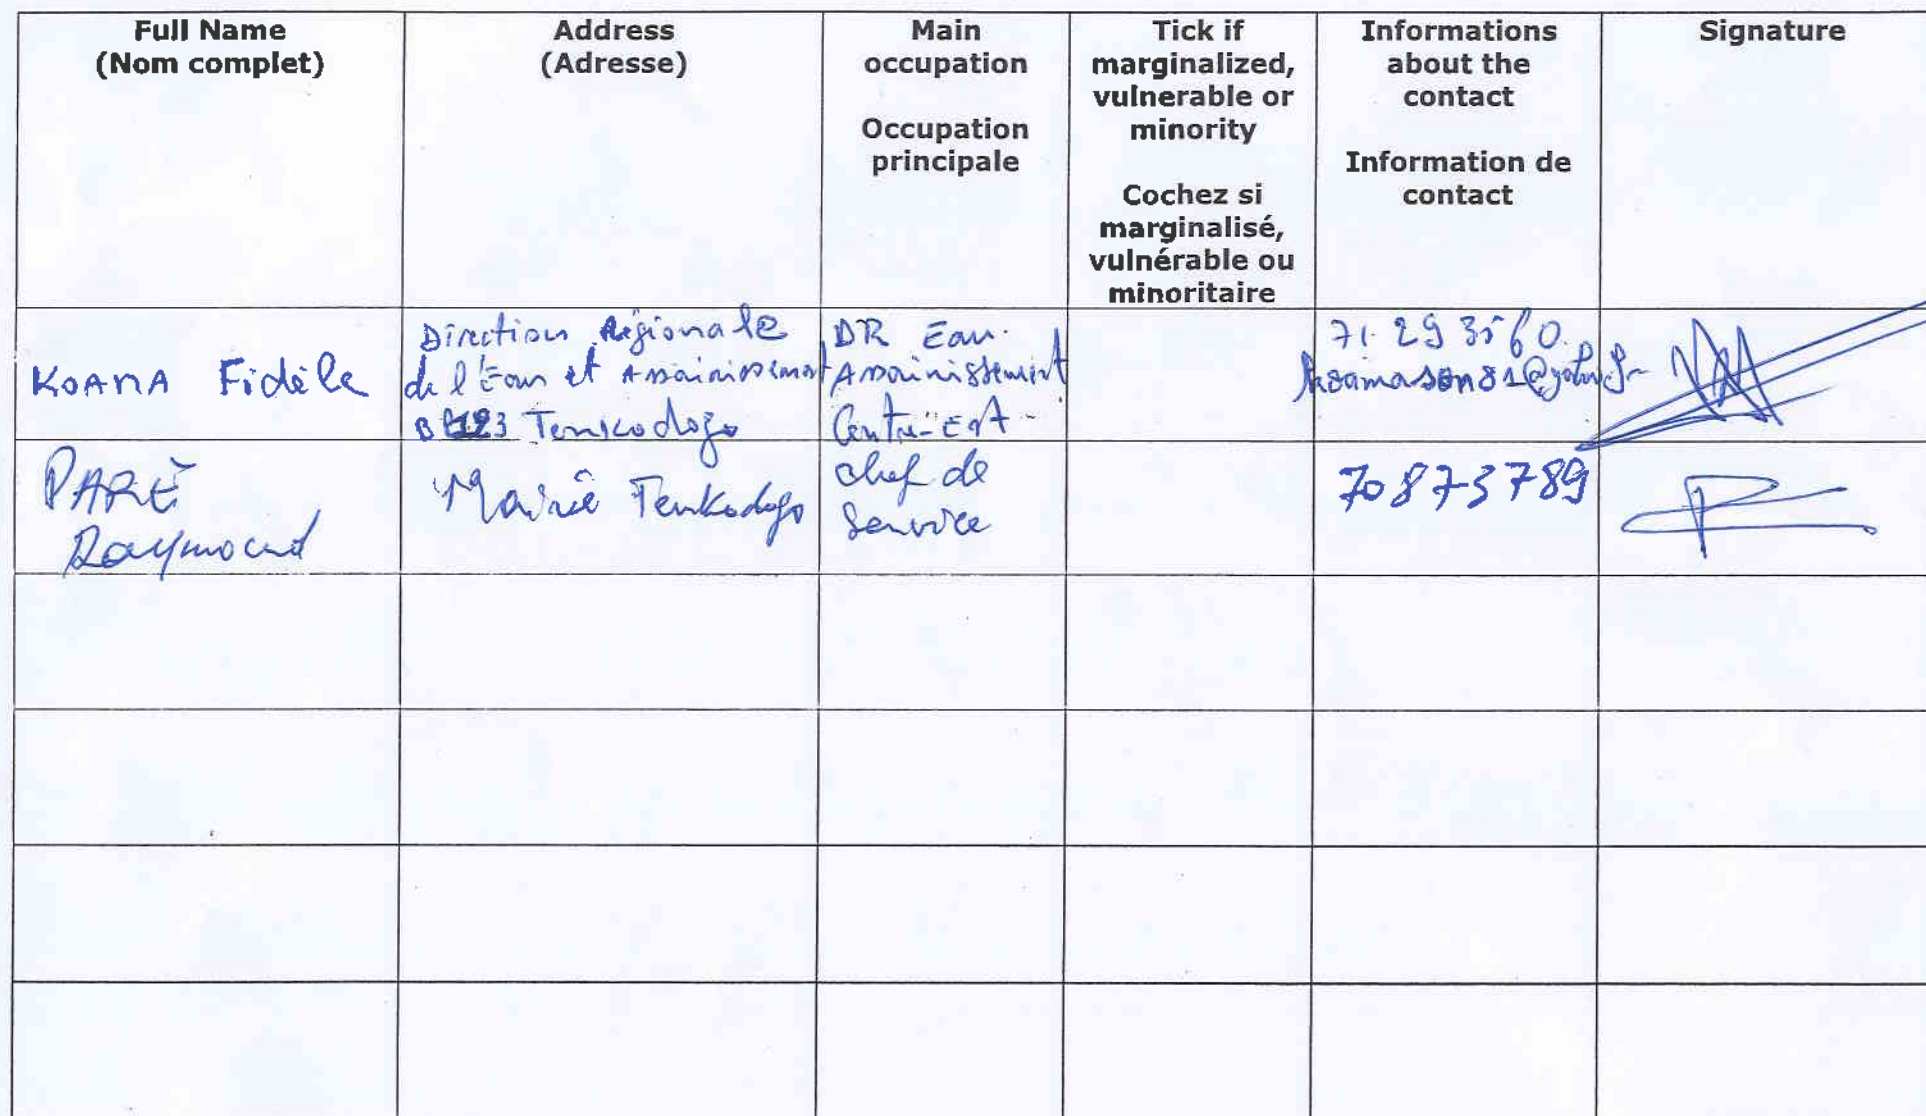 Full Name
(Nom complet)
Address
(Adresse)
Main
occupation
Occupation
principale
Tick if
marginalized,
vulnerable or
minority
Cochez si
marginalisé,
vulnérable ou
minoritaire
Informations
about the
contact
Information de
contact
Signature
KOANA Fidèle
Direction Régionale
de l'Eau et Assainissement
Tenkodogo
DR Eau
Assainissement
Centre-Est
71 29 35 60
PARÉ
Raymond
Mairie Tenkodogo
chef de
service
70873789